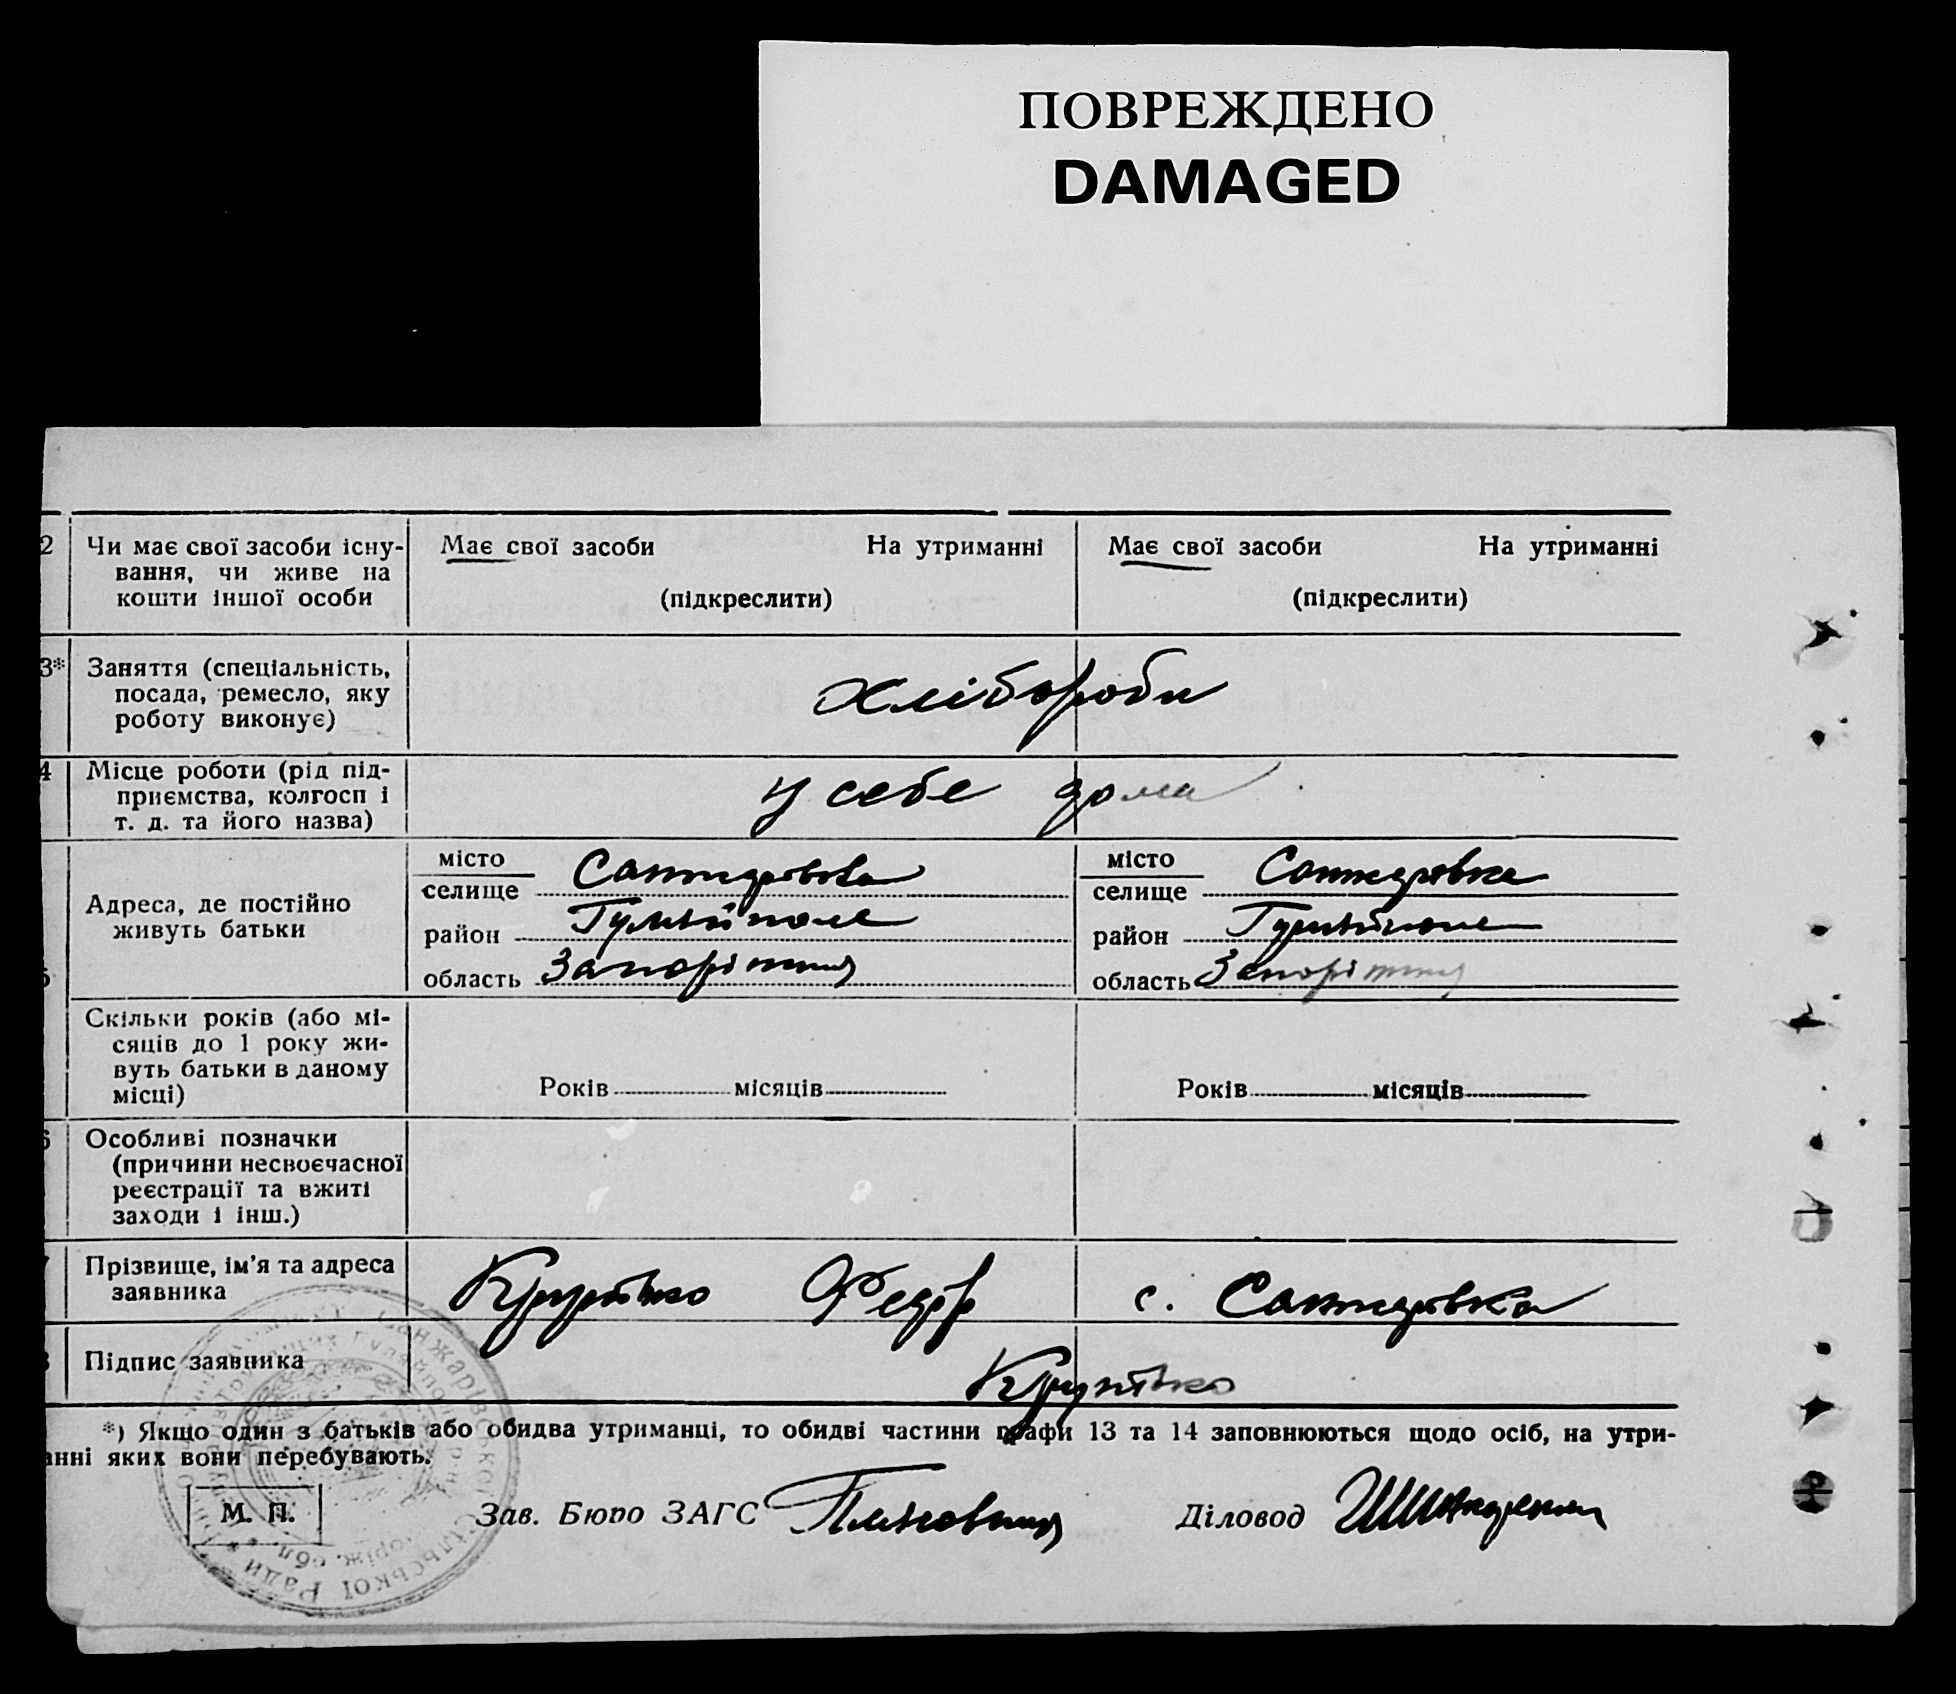 ПОВРЕЖДЕНО
DAMAGED
2 Чи має свої засоби існу- Має свої засоби На утриманні Має свої засоби На утриманні
вання, чи живе на
кошти іншої особи (підкреслити) (підкреслити)
3* Заняття (спеціальність,
посада, ремесло, яку хлібороби
роботу виконує)
4 Місце роботи (рід під-
приємства, колгосп і у себе дома
т. д. та його назва)
місто Санжаровка місто Санжаровка
селище селище
Адреса, де постійно
живуть батьки район Гуляйполе район Гуляйполе
область Запоріжжя область Запоріжжя
Скільки років (або мі-
сяців до 1 року жи-
вуть батьки в даному
місці) Років місяців Років місяців
6 Особливі позначки
(причини несвоєчасної
реєстрації та вжиті
заходи і інш.)
Прізвище, ім'я та адреса
заявника Федір с. Санжаровка
Підпис заявника
*) Якщо один з батьків або обидва утриманці, то обидві частини графи 13 та 14 заповнюються щодо осіб, на утри-
анні яких вони перебувають.
М. П. Зав. Бюро ЗАГС Діловод
Санжарівської Сільської Ради